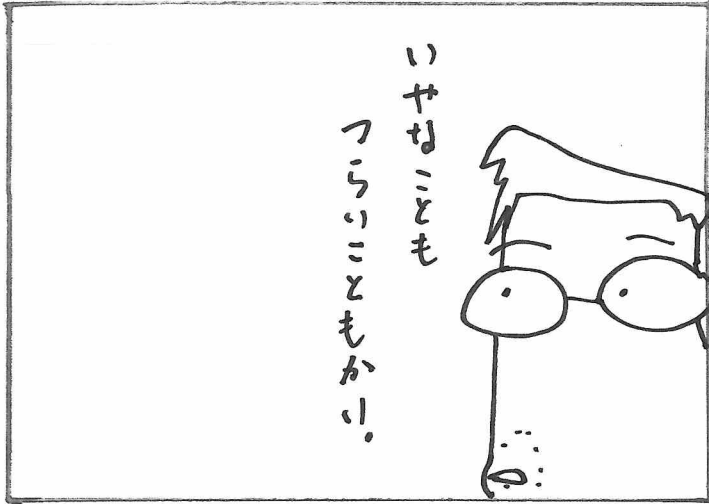 いやなことも
つらいこともかい。